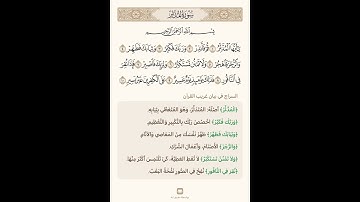 سورة المدثر
بسم الله الرحمن الرحيم
يا أيها المدثر قم فأنذر وربك فكبر وثيابك فطهر
والرجز فاهجر ولا تمنن تستكثر ولربك فاصبر فإذا نقر
في الناقور فذلك يومئذ يوم عسير على الكافرين غير يسير
السراج في بيان غريب القرآن
﴿الْمُدَّثِّرُ﴾ أَصْلُهُ: الْمُتَدَثِّرُ، وَهُوَ الْمُتَغَطِّي بِثِيَابِهِ.
﴿وَرَبَّكَ فَكَبِّرْ﴾ اخْصُصْ رَبَّكَ بِالتَّكْبِيرِ وَالتَّعْظِيمِ.
﴿وَثِيَابَكَ فَطَهِّرْ﴾ طَهِّرْ نَفْسَكَ مِنَ الْمَعَاصِي وَالْآثَامِ.
﴿وَالرُّجْزَ﴾ الْأَصْنَامَ، وَأَعْمَالَ الشِّرْكِ.
﴿وَلَا تَمْنُن تَسْتَكْثِرُ﴾ لَا تُعْطِ الْعَطِيَّةَ، كَيْ تَلْتَمِسَ أَكْثَرَ مِنْهَا.
﴿نُقِرَ فِي النَّاقُورِ﴾ نُفِخَ فِي الصُّورِ نَفْخَةُ الْبَعْثِ.